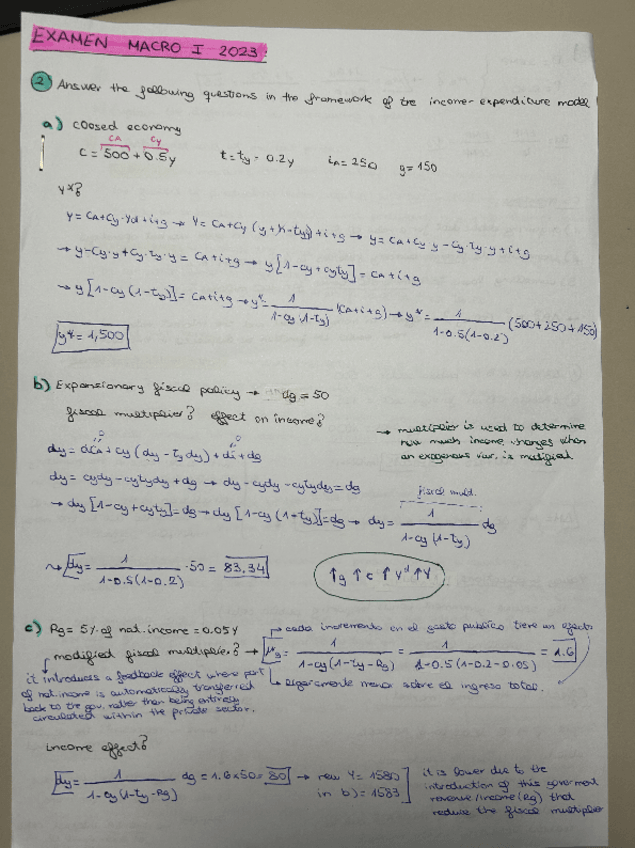 EXAMEN MACRO I 2023.
2 Answer the following questions in the framework of the income-expenditure model
a) closed economy
CA Cy
C = 500 + 0.5y t = ty = 0.2y iA = 250 g = 150
y*?
Y = CA + Cy·Yd + i + g → Y = CA + Cy (y + tr - ty) + i + g → y = CA + Cy y - Cy·ty·y + i + g
→ y - Cy·y + Cy·ty·y = CA + i + g → y [1 - cy + cyty] = CA + i + g
→ y [1 - cy (1 - ty)] = CA + i + g → y* = 1 / 1 - cy (1 - ty) (CA + i + g) → y* = 1 / 1 - 0.5 (1 - 0.2) (500 + 250 + 150)
y* = 1,500
b) Expansionary fiscal policy → dg = 50
fiscal multiplier? effect on income?
→ multiplier is used to determine
how much income changes when
an exogenous var. is modified
dy = dCA + cy (dy - ty dy) + di + dg
dy = cydy - cytydy + dg → dy - cydy - cytydy = dg
→ dy [1 - cy + cyty] = dg → dy [1 - cy (1 + ty)] = dg → dy = 1 / 1 - cy (1 - ty) dg
fiscal mult.
dy = 1 / 1 - 0.5 (1 - 0.2) · 50 = 83.34
↑g ↑c ↑yd ↑Y
c) Rg = 5% of nat. income = 0.05Y
cada incremento en el gasto publico tiene un efecto
modified fiscal multiplier? → = 1 / 1 - cy (1 - ty - Rg) = 1 / 1 - 0.5 (1 - 0.2 - 0.05) = 1.6
ligeramente menor sobre el ingreso total.
it introduces a feedback effect where part
of nat. income is automatically transferred
back to the gov. rather than being entirely
circulated within the private sector.
income effect?
dy = 1 / 1 - cy (1 - ty - Rg) dg = 1.6 x 50 = 80 → new Y = 1580
in b) = 1583
it is lower due to the
introduction of this goverment
revenue/income (Rg) that
reduce the fiscal multiplier